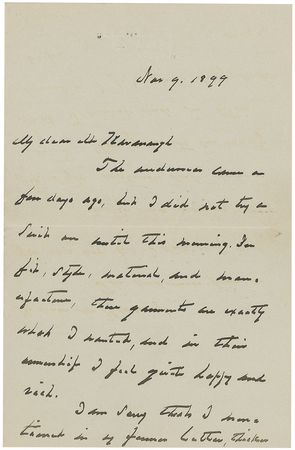 Nov 9. 1899
My dear Mr Kavanaugh
The underwear came a
few days ago, but I did not try a
suit on until this morning. In
fit, style, material, and man-
ufacture, these garments are exactly
what I wanted, and in their
ownership I feel quite happy and
rich.
I am sorry that I men-
tioned in my former letter,